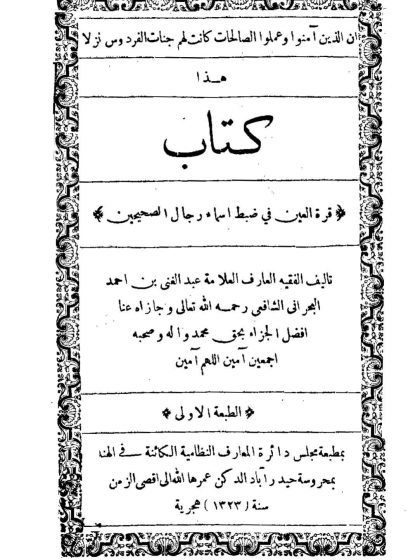 ان الذين آمنوا وعملوا الصالحات كانت لهم جنات الفردوس نزلا
هذا
كتاب
﴿ قرة العين في ضبط اسماء رجال الصحيحين ﴾
تاليف الفقيه العارف العلامة عبد الغنى بن احمد
البحرانى الشافعى رحمه الله تعالى وجازاه عنا
افضل الجزاء بحق محمد واله وصحبه
اجمعين آمين اللهم آمين
﴿ الطبعة الاولى ﴾
بمطبعة مجلس دائرة المعارف النظامية الكائنة في الهند
بمحروسة حيدرآباد الدكن عمرها الله الى اقصى الزمن
سنة (١٣٢٣) هجرية